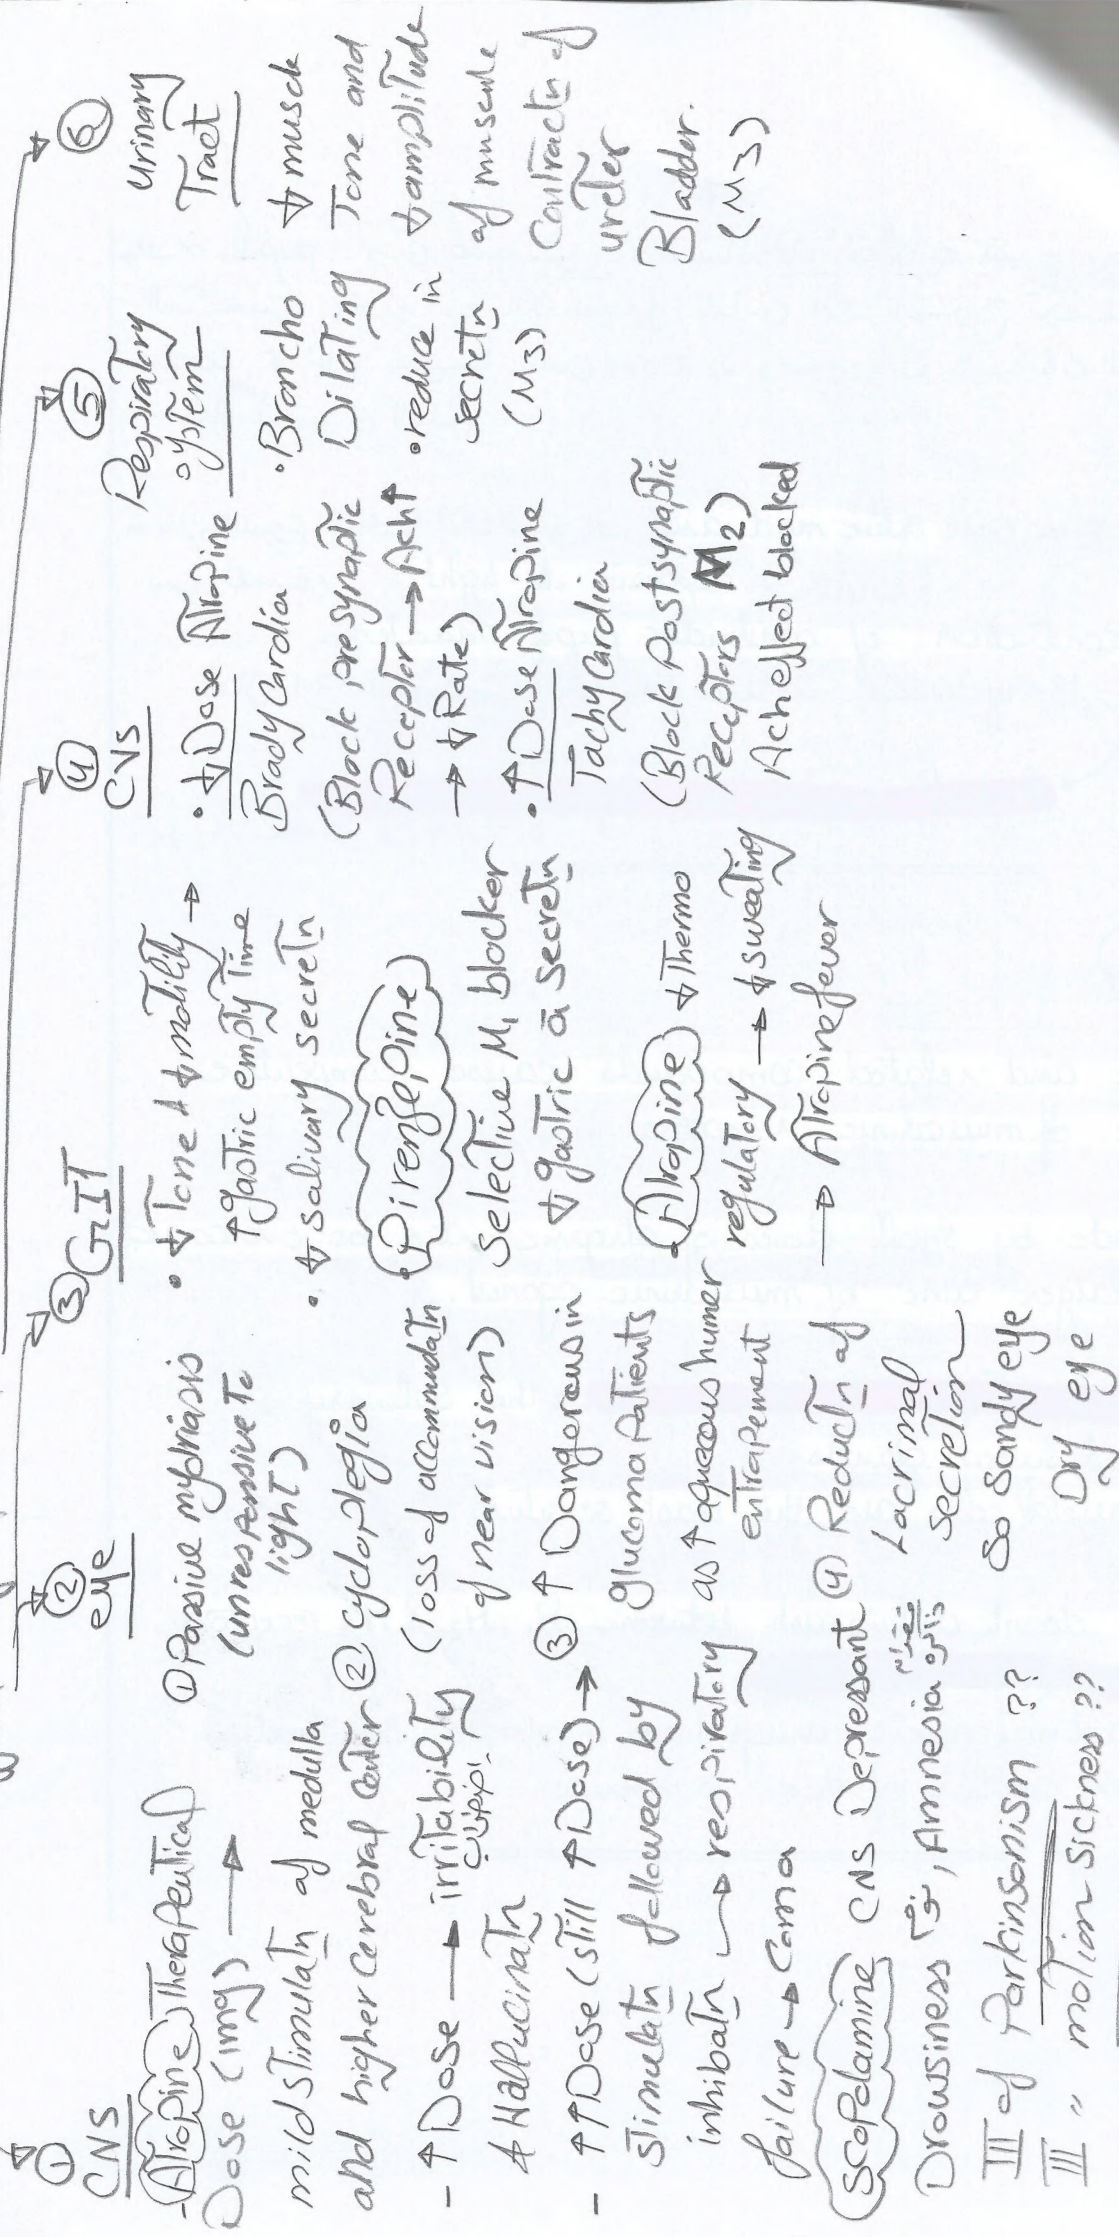 ① CNS
- Atropine Therapeutical
Dose (1mg) →
mild stimulatn of medulla
and higher cerebral center
- ↑ Dose → irritability
& Hallucinatn
- ↑↑ Dose (still ↑ Dose) →
stimulatn followed by
inhibatn → respiratory
failure → Coma
Scopolamine CNS Depressant
Drowsiness, Amnesia
III of Parkinsonism ??
III " motion sickness ??
② eye
① Passive mydriasis
(unresponsive to
light)
② cycloplegia
(loss of accommodatn
of near vision)
③ ↑ Dangerous in
glucoma patients
as ↑ aqueous humer
entrapement
④ Reductn of
Lacrimal
Secretion
so sandy eye
Dry eye
③ GIT
• ↓ Tone & ↓ motility →
↑ gastric empty time
• ↓ salivary secretn
• Pirenzepine
Selective M1 blocker
↓ gastric a secretn
• Atropine ↓ Thermo
regulatory → ↓ sweating
→ Atropine fever
④ CVS
• ↓ Dose Atropine
BradyCardia
(Block presynaptic
Receptor → Ach ↑
→ ↓ Rate)
• ↑ Dose Atropine
TachyCardia
(Block postsynaptic
Receptors M2)
Ach effect blocked
⑤ Respiratory
system
• Broncho
Dilating
• reduce in
secretn
(M3)
⑥ Urinary
Tract
↓ muscle
Tone and
↓ amplitude
of muscule
Contractn of
ureter
Bladder.
(M3)